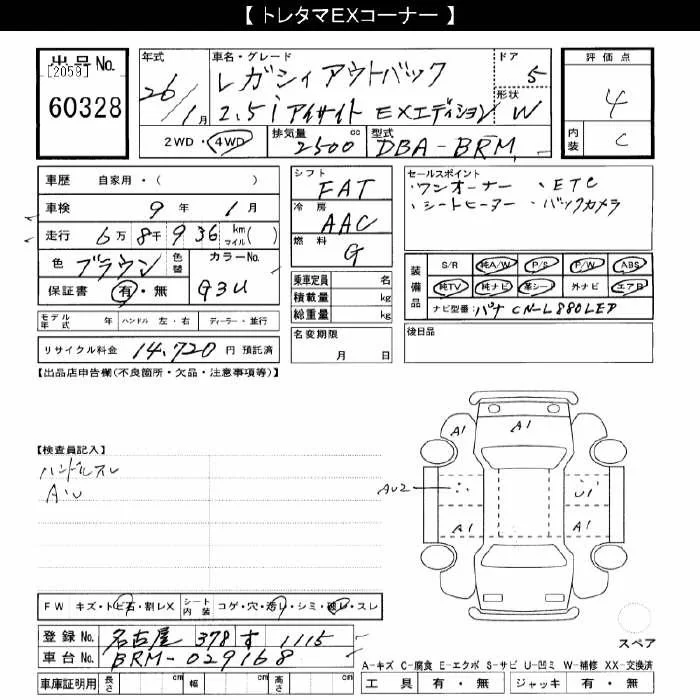 【 トレタマEXコーナー 】
出品No.
[2059]
60328
年式
26/1月
車名・グレード
レガシィ アウトバック
2.5i アイサイト EXエディション
ドア
5
形状
W
評価点
4
内装
C
2WD・4WD
排気量
2500 cc
型式
DBA-BRM
車歴 自家用・( )
車検 9年 1月
走行 6万8千936 km マイル( )
色 ブラウン 色替
カラーNo.
G3U
保証書 有・無
シフト
FAT
冷房
AAC
燃料
G
セールスポイント
・ワンオーナー ・ETC
・シートヒーター ・バックカメラ
乗車定員 名
積載量 kg
総重量 kg
装備品
S/R 純A/W P/S P/W ABS
純TV 純ナビ 革シート 外ナビ エアB
ナビ型番: パナ CN-L880LED
モデル年式 年 ハンドル 左・右 ディーラー・並行
リサイクル料金 14,720 円 預託済
名変期限
月 日
後日品
【出品店申告欄(不良箇所・欠品・注意事項等)】
【検査員記入】
ハンドルスレ
AU
A1
A1
AU2
U1
A1
A1
FW キズ・トビ石・割レX
シート内装 コゲ・穴・汚レ・シミ・破レ・スレ
登録No. 名古屋 378 す 1115
車台No. BRM-029168
車庫証明用 長さ cm 幅 cm 高さ cm
スペア
A-キズ C-腐食 E-エクボ S-サビ U-凹ミ W-補修 XX-交換済
工具 有・無 ジャッキ 有・無